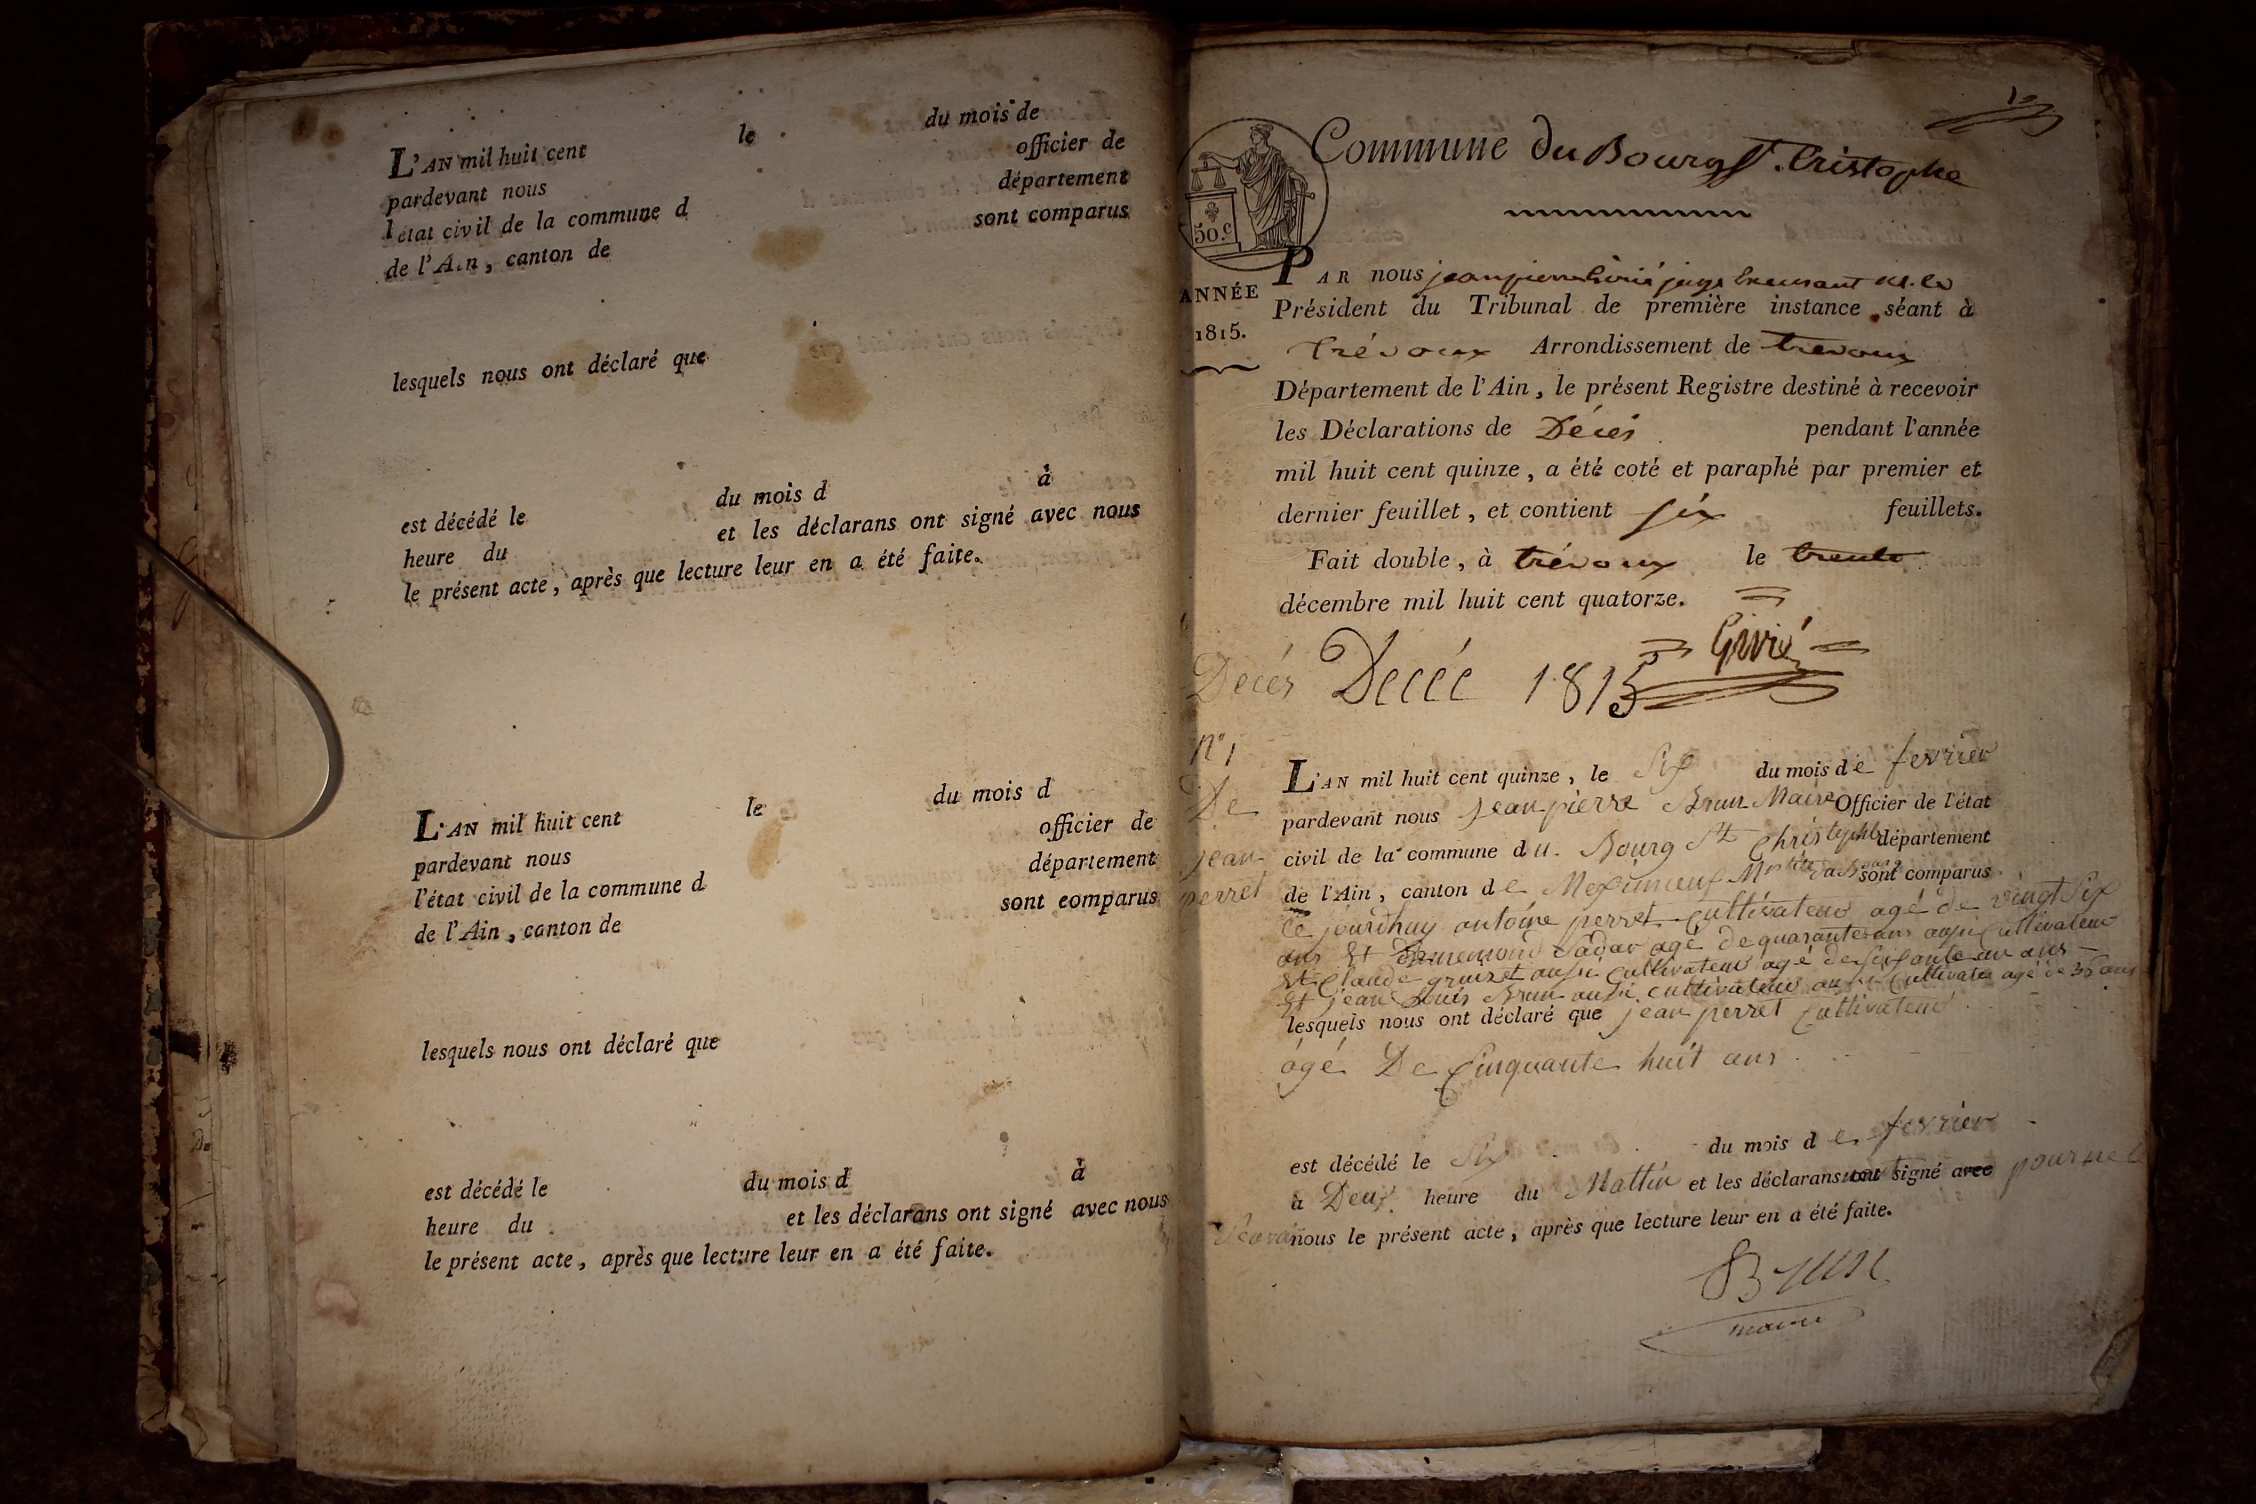 L'AN mil huit cent le du mois de
pardevant nous officier de
l'état civil de la commune d département
de l'Ain, canton de sont comparus
lesquels nous ont déclaré que
est décédé le du mois d à
heure du et les déclarans ont signé avec nous
le présent acte, après que lecture leur en a été faite.
L'AN mil huit cent le du mois d
pardevant nous officier de
l'état civil de la commune d département
de l'Ain, canton de sont comparus
lesquels nous ont déclaré que
est décédé le du mois d à
heure du et les déclarans ont signé avec nous
le présent acte, après que lecture leur en a été faite.
Commune du Bourg St. Cristophe
50.c
ANNÉE
1815.
PAR nous jean pierre juge
Président du Tribunal de première instance séant à
trévoux Arrondissement de trevoux
Département de l'Ain, le présent Registre destiné à recevoir
les Déclarations de Décés pendant l'année
mil huit cent quinze, a été coté et paraphé par premier et
dernier feuillet, et contient six feuillets.
Fait double, à trévoux le trente
décembre mil huit cent quatorze.
Décés Decéé 1815
n° 1
De
jean
perret
L'AN mil huit cent quinze, le Six du mois de fevrier
pardevant nous jean pierre Brun Maire Officier de l'état
civil de la commune du Bourg St Christophe département
de l'Ain, canton de Meximieux sont comparus
Ce jourdhuy antoine perret cultivateur agé de vingt Six
ans Et agé de quarante ans aussi Cultivateur
Et Claude aussi Cultivateur agé de ans
Et jean Louis Brun aussi cultivateur agé de 36 ans
lesquels nous ont déclaré que jean perret Cultivateur
âgé De Cinquante huit ans
est décédé le Six du mois de fevrier
à Deux heure du Mattin et les déclarans ont signé avec pour ne le
nous le présent acte, après que lecture leur en a été faite.
Brun
maire